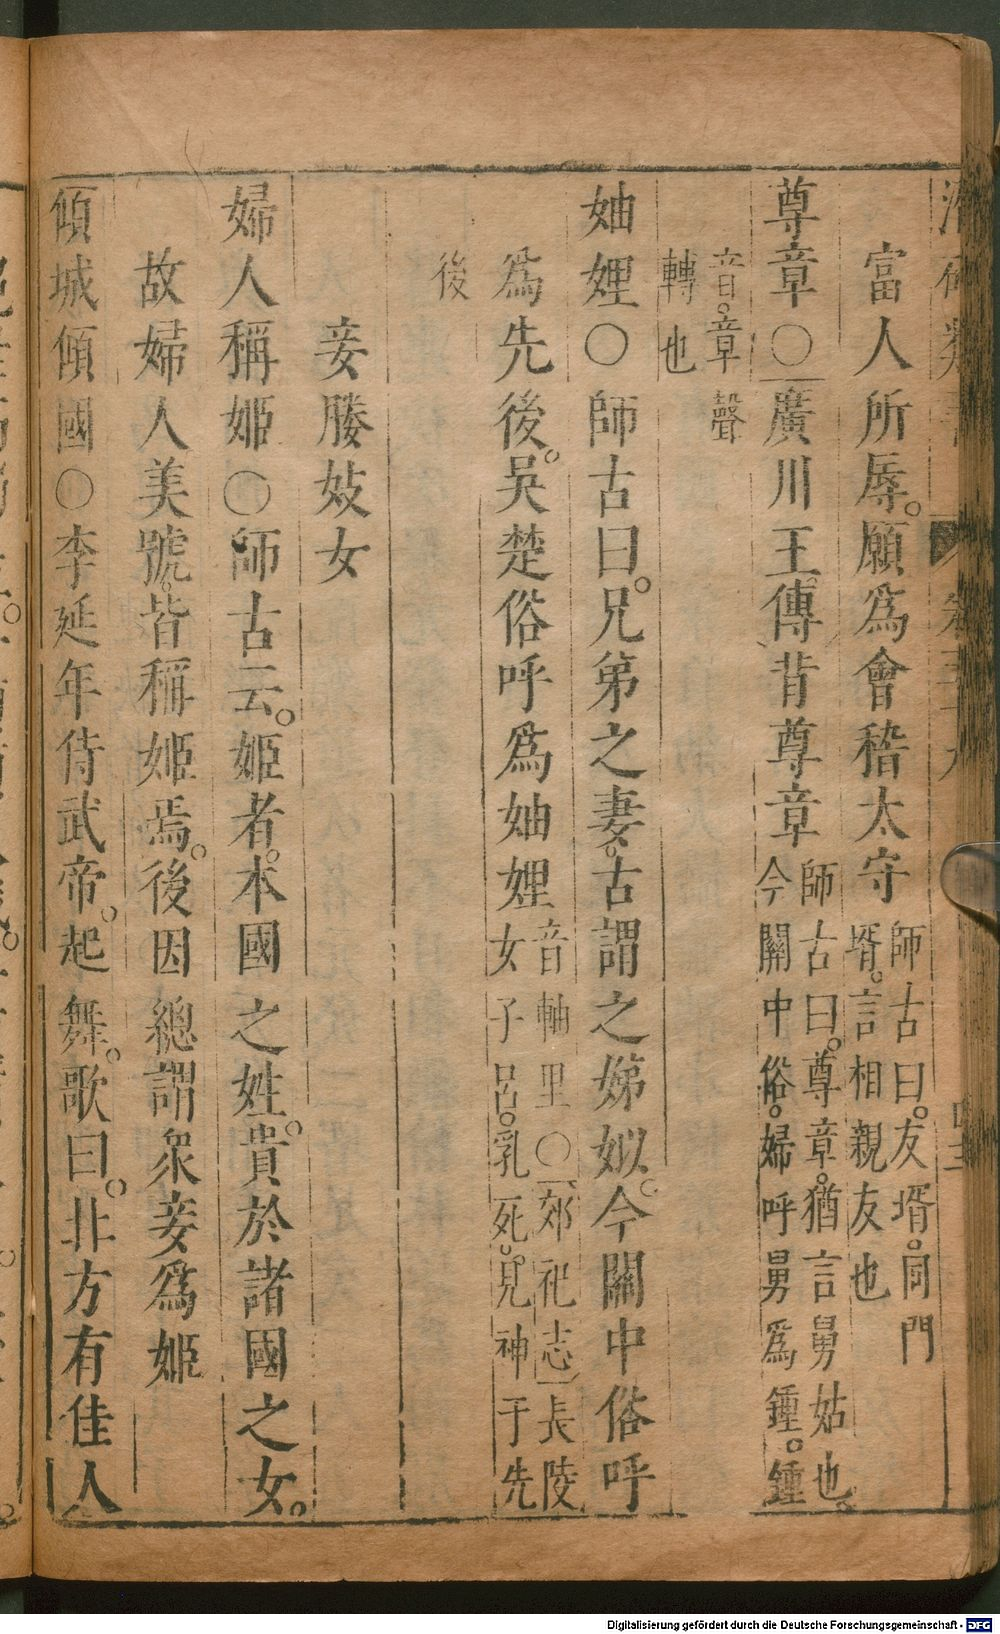 富人所辱願爲會稽太守師古曰友壻同門
壻言相親友也
尊章〇廣川王傳背尊章師古曰尊章猶言舅姑也
今關中俗婦呼舅爲鍾鍾
音章聲
轉也
妯娌〇師古曰兄弟之妻古謂之娣姒今關中俗呼
爲先後吳楚俗呼爲妯娌音軸里〇郊祀志長陵
女子呂乳死見神于先
後
妾媵妓女
婦人稱姬〇師古云姬者本國之姓貴於諸國之女
故婦人美號皆稱姬焉後因總謂衆妾爲姬
傾城傾國〇李延年侍武帝起舞歌曰北方有佳人
Digitalisierung gefördert durch die Deutsche Forschungsgemeinschaft - DFG